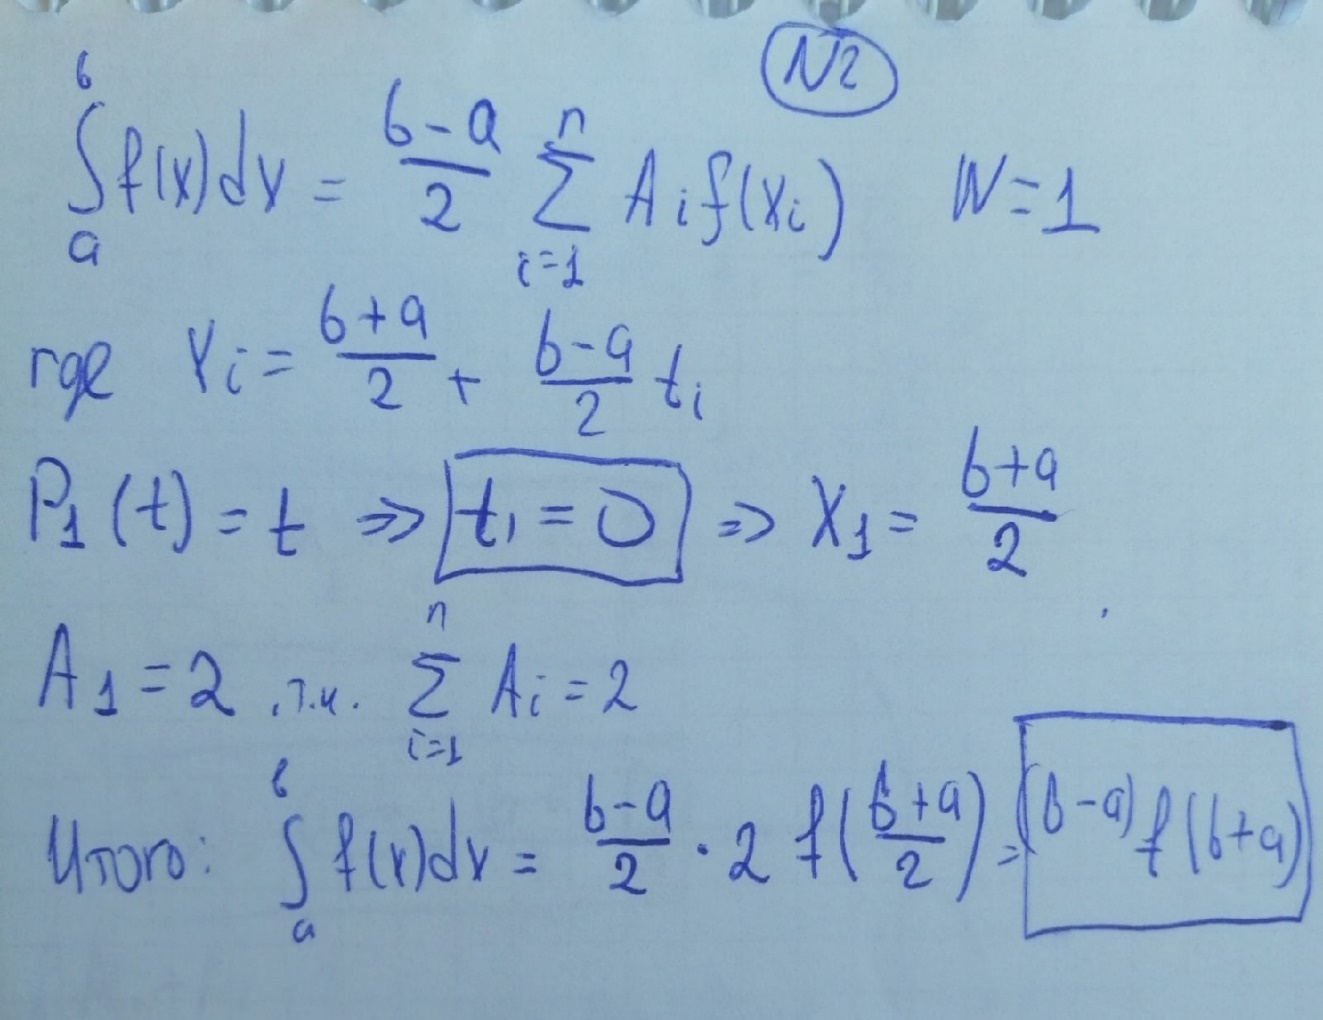 N2
∫_a^b f(x)dx = (b-a)/2 ∑_{i=1}^n A_i f(x_i) N=1
где x_i = (b+a)/2 + (b-a)/2 t_i
P_1(t) = t ⇒ t_1 = 0 ⇒ x_1 = (b+a)/2
A_1 = 2, т.к. ∑_{i=1}^n A_i = 2
Итого: ∫_a^b f(x)dx = (b-a)/2 · 2 f((b+a)/2) = (b-a) f(b+a)